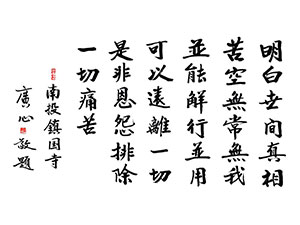 明白世間真相
苦空無常無我
並能解行並用
可以遠離一切
是非恩怨排除
一切痛苦
南投鎮国寺
廣心敬題